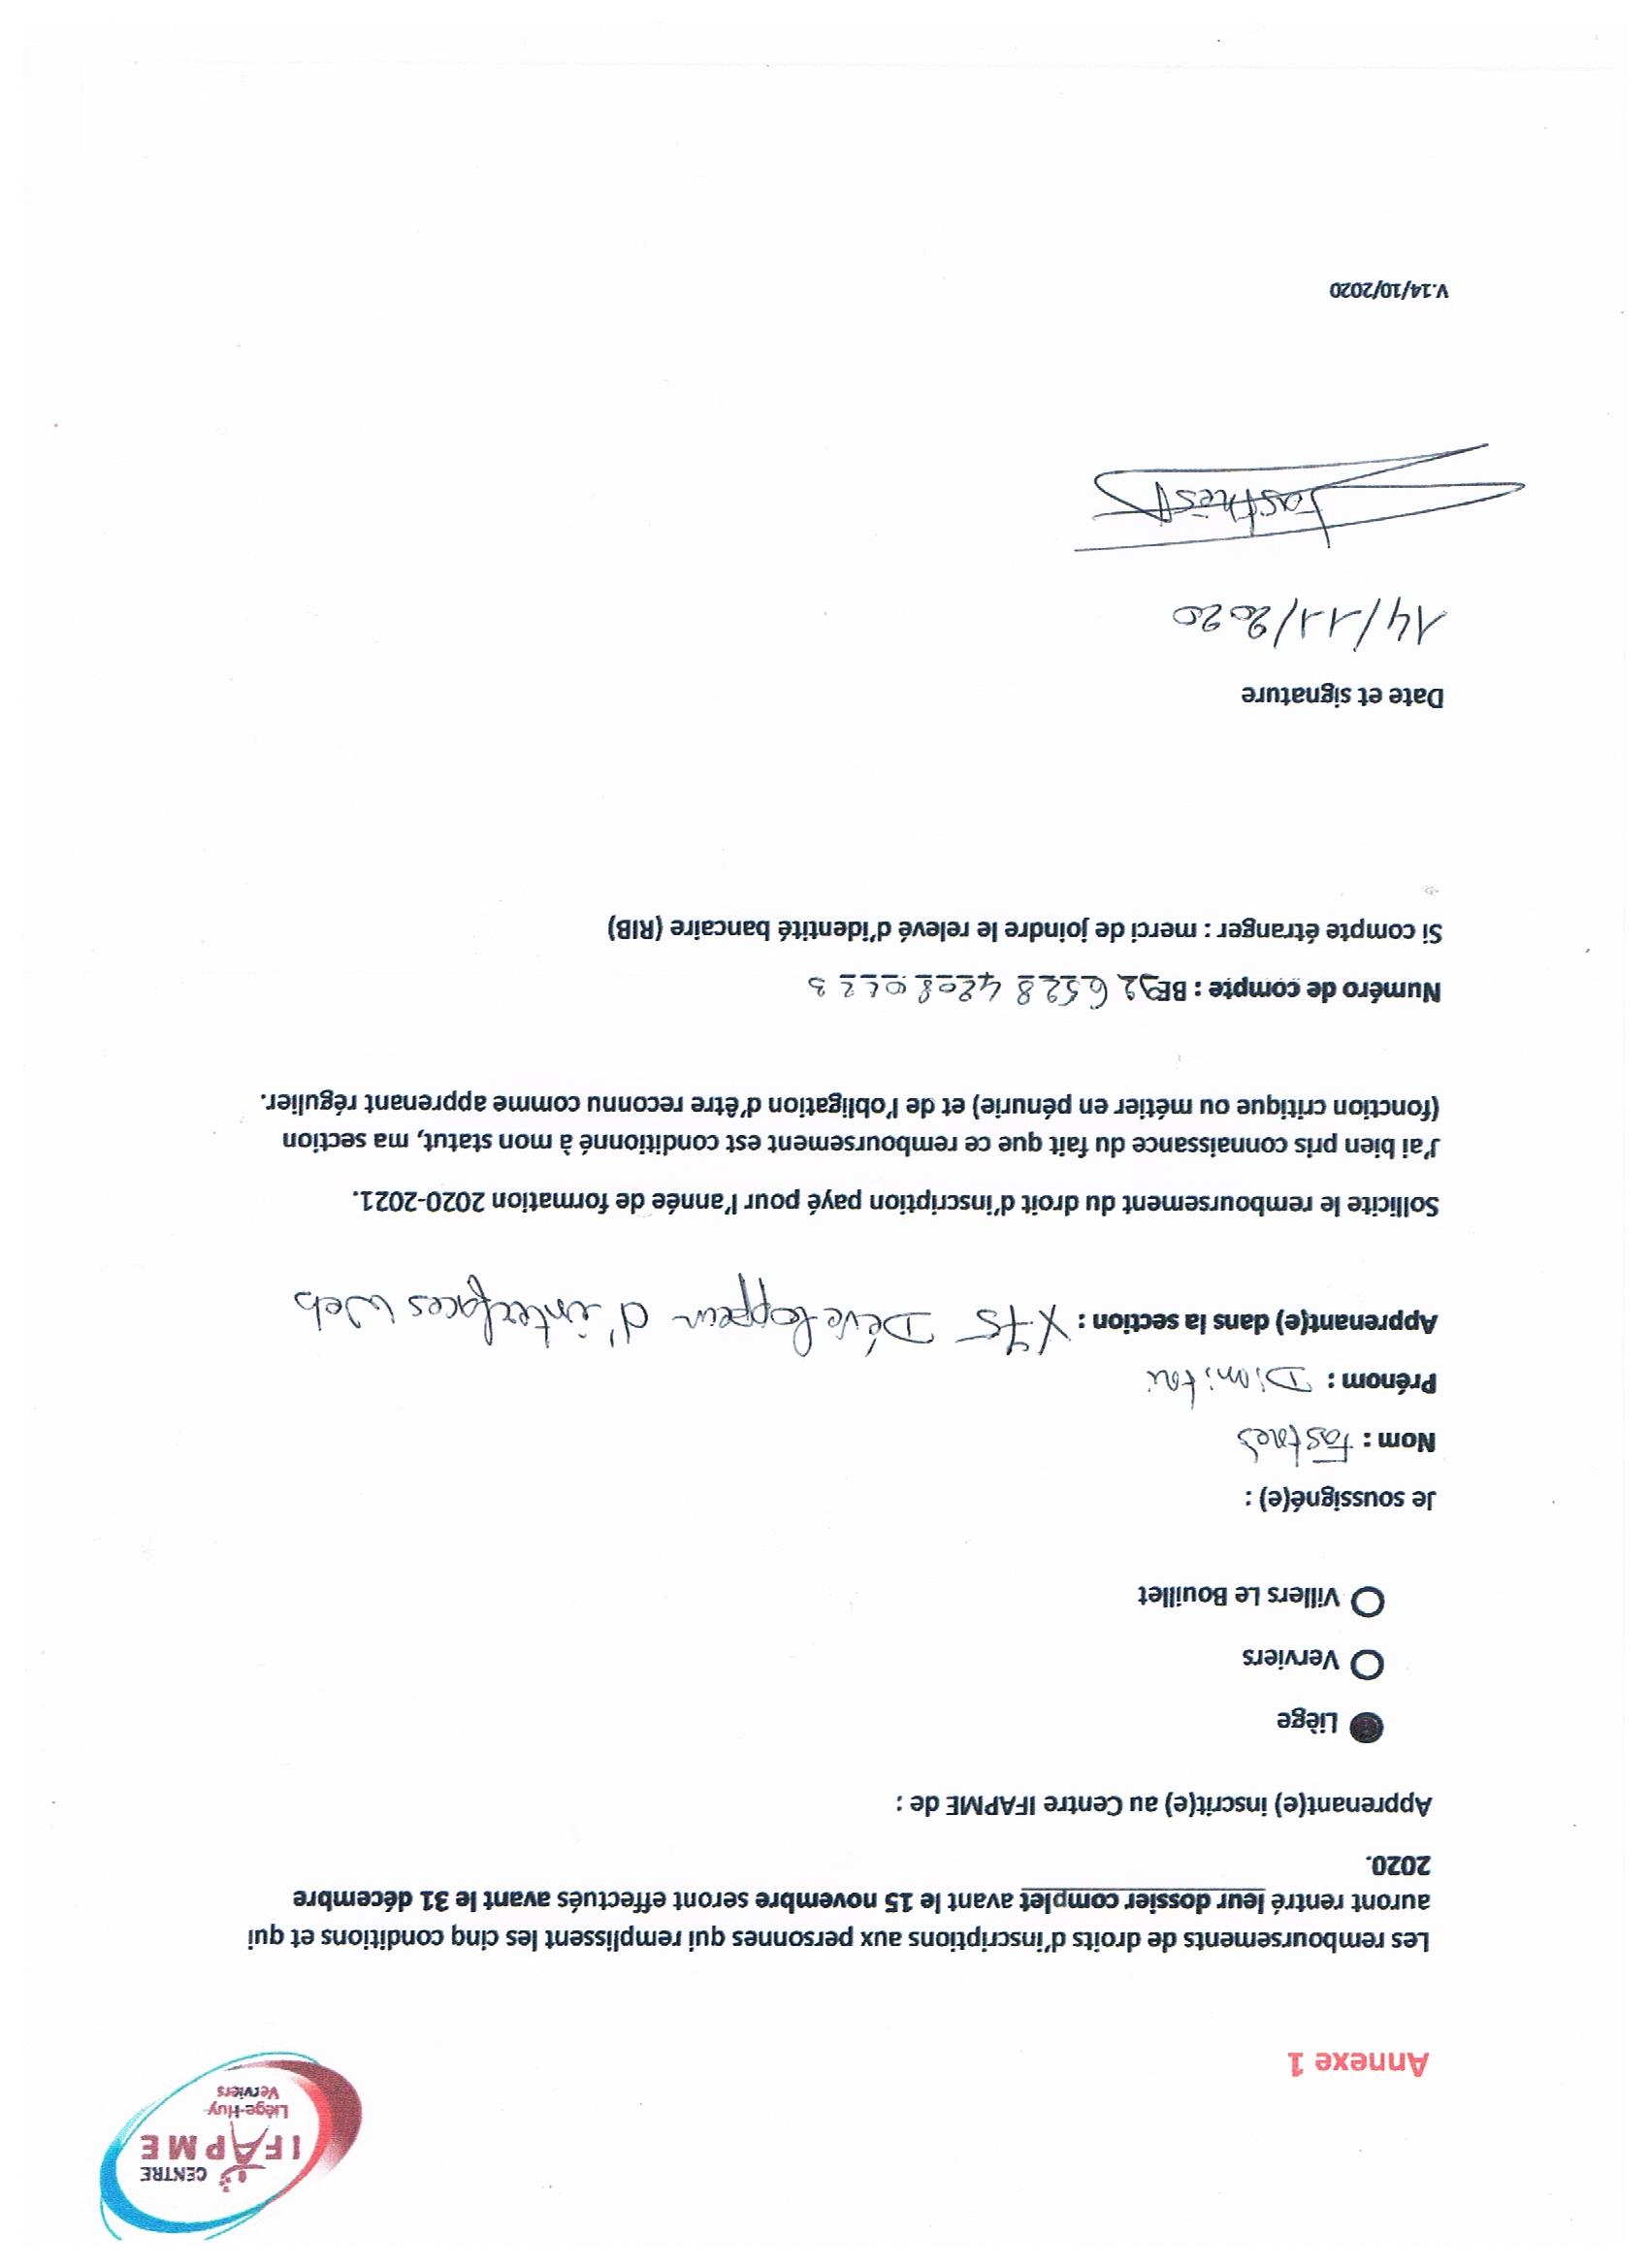 CENTRE
IFAPME
Liège-Huy-
Verviers
Annexe 1
Les remboursements de droits d'inscriptions aux personnes qui remplissent les cinq conditions et qui
auront rentré leur dossier complet avant le 15 novembre seront effectués avant le 31 décembre
2020.
Apprenant(e) inscrit(e) au Centre IFAPME de :
Liège
Verviers
Villers Le Bouillet
Je soussigné(e) :
Nom : Fastrès
Prénom : Dimitri
Apprenant(e) dans la section : X75 Développeur d'interfaces Web
Sollicite le remboursement du droit d'inscription payé pour l'année de formation 2020-2021.
J'ai bien pris connaissance du fait que ce remboursement est conditionné à mon statut, ma section
(fonction critique ou métier en pénurie) et de l'obligation d'être reconnu comme apprenant régulier.
Numéro de compte : BE92 6528 4208 0223
Si compte étranger : merci de joindre le relevé d'identité bancaire (RIB)
Date et signature
14/11/2020
Fastrès D
V.14/10/2020